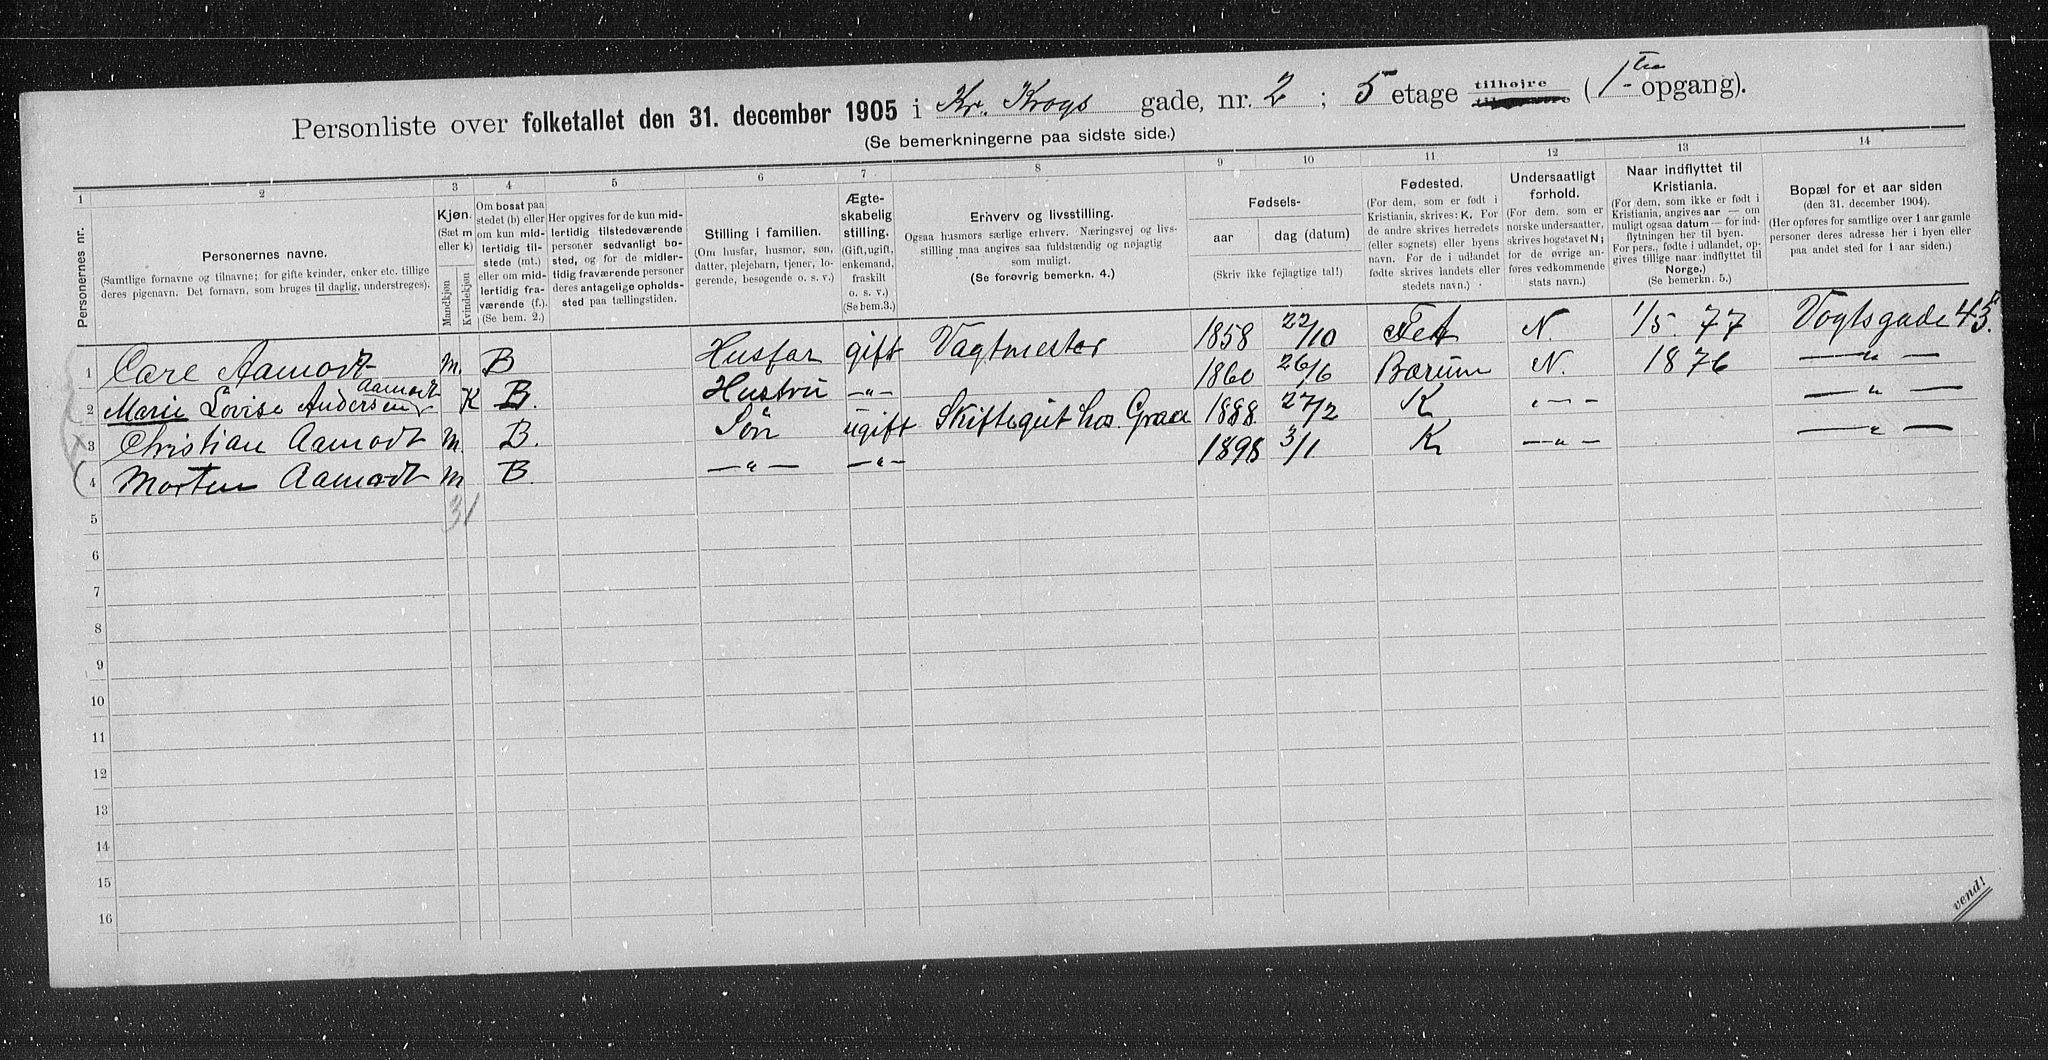 Personliste over folketallet den 31. december 1905 i Kr. Krogs gade, nr. 2 ; 5 etage tilhøjre (1ste opgang).
(Se bemerkningerne paa sidste side.)
1 2 3 4 5 6 7 8 9 10 11 12 13 14
Personernes nr.
Personernes navne.
(Samtlige fornavne og tilnavne; for gifte kvinder, enker etc. tillige
deres pigenavn. Det fornavn, som bruges til daglig, understreges).
Kjøn.
(Sæt m
eller k)
Mandkjøn
Kvindekjøn
Om bosat paa
stedet (b) eller
om kun mid-
lertidig til-
stede (mt.)
eller om mid-
lertidig fra-
værende (f.).
(Se bem. 2.)
Her opgives for de kun mid-
lertidig tilstedeværende
personer sedvanligt bo-
sted, og for de midler-
tidig fraværende personer
deres antagelige opholds-
sted paa tællingstiden.
Stilling i familien.
(Om husfar, husmor, søn,
datter, plejebarn, tjener, lo-
gerende, besøgende o. s. v.)
Ægte-
skabelig
stilling.
(Gift, ugift,
enkemand,
fraskilt
o. s. v.)
(Se bem.3.)
Erhverv og livsstilling.
Ogsaa husmors særlige erhverv. Næringsvej og livs-
stilling maa angives saa fuldstændig og nøjagtig
som muligt.
(Se forøvrig bemerkn. 4.)
Fødsels-
aar dag (datum)
(Skriv ikke fejlagtige tal!)
Fødested.
(For dem, som er født i
Kristiania, skrives: K. For
de andre skrives herredets
(eller sognets) eller byens
navn. For de i udlandet
fødte skrives landets eller
stedets navn.)
Undersaatligt
forhold.
(For dem, som er
norske undersaatter,
skrives bogstavet N;
for de øvrige an-
føres vedkommende
stats navn.)
Naar indflyttet til
Kristiania.
(For dem, som ikke er født i
Kristiania, angives aar — om
muligt ogsaa datum — for ind-
flytningen her til byen.
For pers., fødte i udlandet, op-
gives tillige naar indflyttet til
Norge.)
(Se bemerkn. 5.)
Bopæl for et aar siden
(den 31. december 1904).
(Her opføres for samtlige over 1 aar gamle
personer deres adresse her i byen eller
paa andet sted for 1 aar siden.)
1 Carl Aamodt m. B Husfar gift Vagtmester 1858 22/10 Fet N. 1/5. 77 Vogtsgade 45.
2 Marie Lovise Andersen Aamodt K B. Hustru —„— 1860 26/6 Bærum N. 1876 —„—
3 Christian Aamodt m. B. Søn ugift Skiftegut hos Graa 1888 27/2 K „—— —„—
4 Morten Aamodt m B. —„— —„— 1898 3/1 K —„— —„—
31
5
6
7
8
9
10
11
12
13
14
15
16
vend!